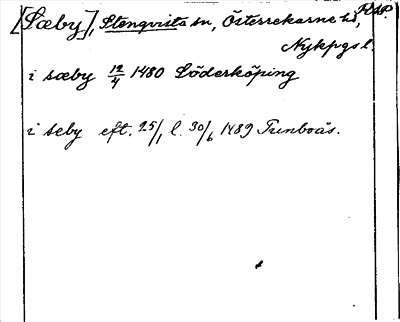 [Sæby], Stenqvista sn, Österrekarne hd,
Nykpgs l.
i sæby 12/4 1480 Söderköping
i seby eft. 25/1 l. 30/6 1489 Tunboäs.